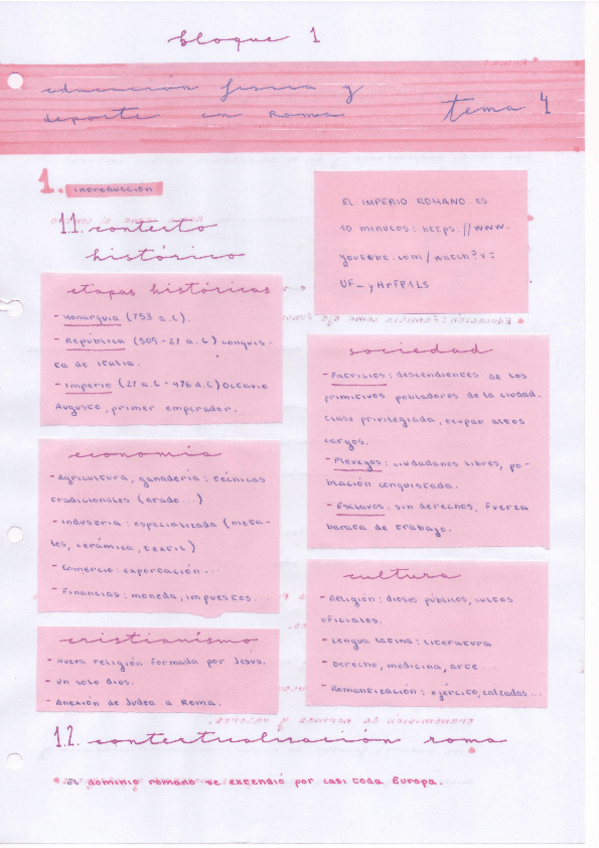 bloque 1
educación física y
deporte en Roma
tema 4
1. introducción
1.1. contexto
histórico
EL IMPERIO ROMANO ES
10 minutos: https://www.
youtube.com/watch?v=
etapas históricas
- Monarquía (753 a.C).
- República (509-27 a.C) conquis-
ta de Italia.
- Imperio (27 a.C - 476 d.C) Octavio
Augusto, primer emperador.
sociedad
- Patricios: descendientes de los
primitivos pobladores de la ciudad.
Clase privilegiada, ocupan altos
cargos.
- Plebeyos: ciudadanos libres, po-
blación conquistada.
- Esclavos: sin derechos, fuerza
barata de trabajo.
economía
- Agricultura, ganadería: técnicas
tradicionales (arado...)
- Industria: especializada (meta-
les, cerámica, textil)
- Comercio: exportación...
- Financias: moneda, impuestos...
cultura
- Religión: dioses públicos, cultos
oficiales.
- Lengua latina: literatura
- Derecho, medicina, arte...
- Romantización: ejército, calzadas...
cristianismo
- Nueva religión formada por Jesús.
- Un solo dios.
- Anexión de Judea a Roma.
1.2. contextualización roma
• El dominio romano se extendió por casi toda Europa.